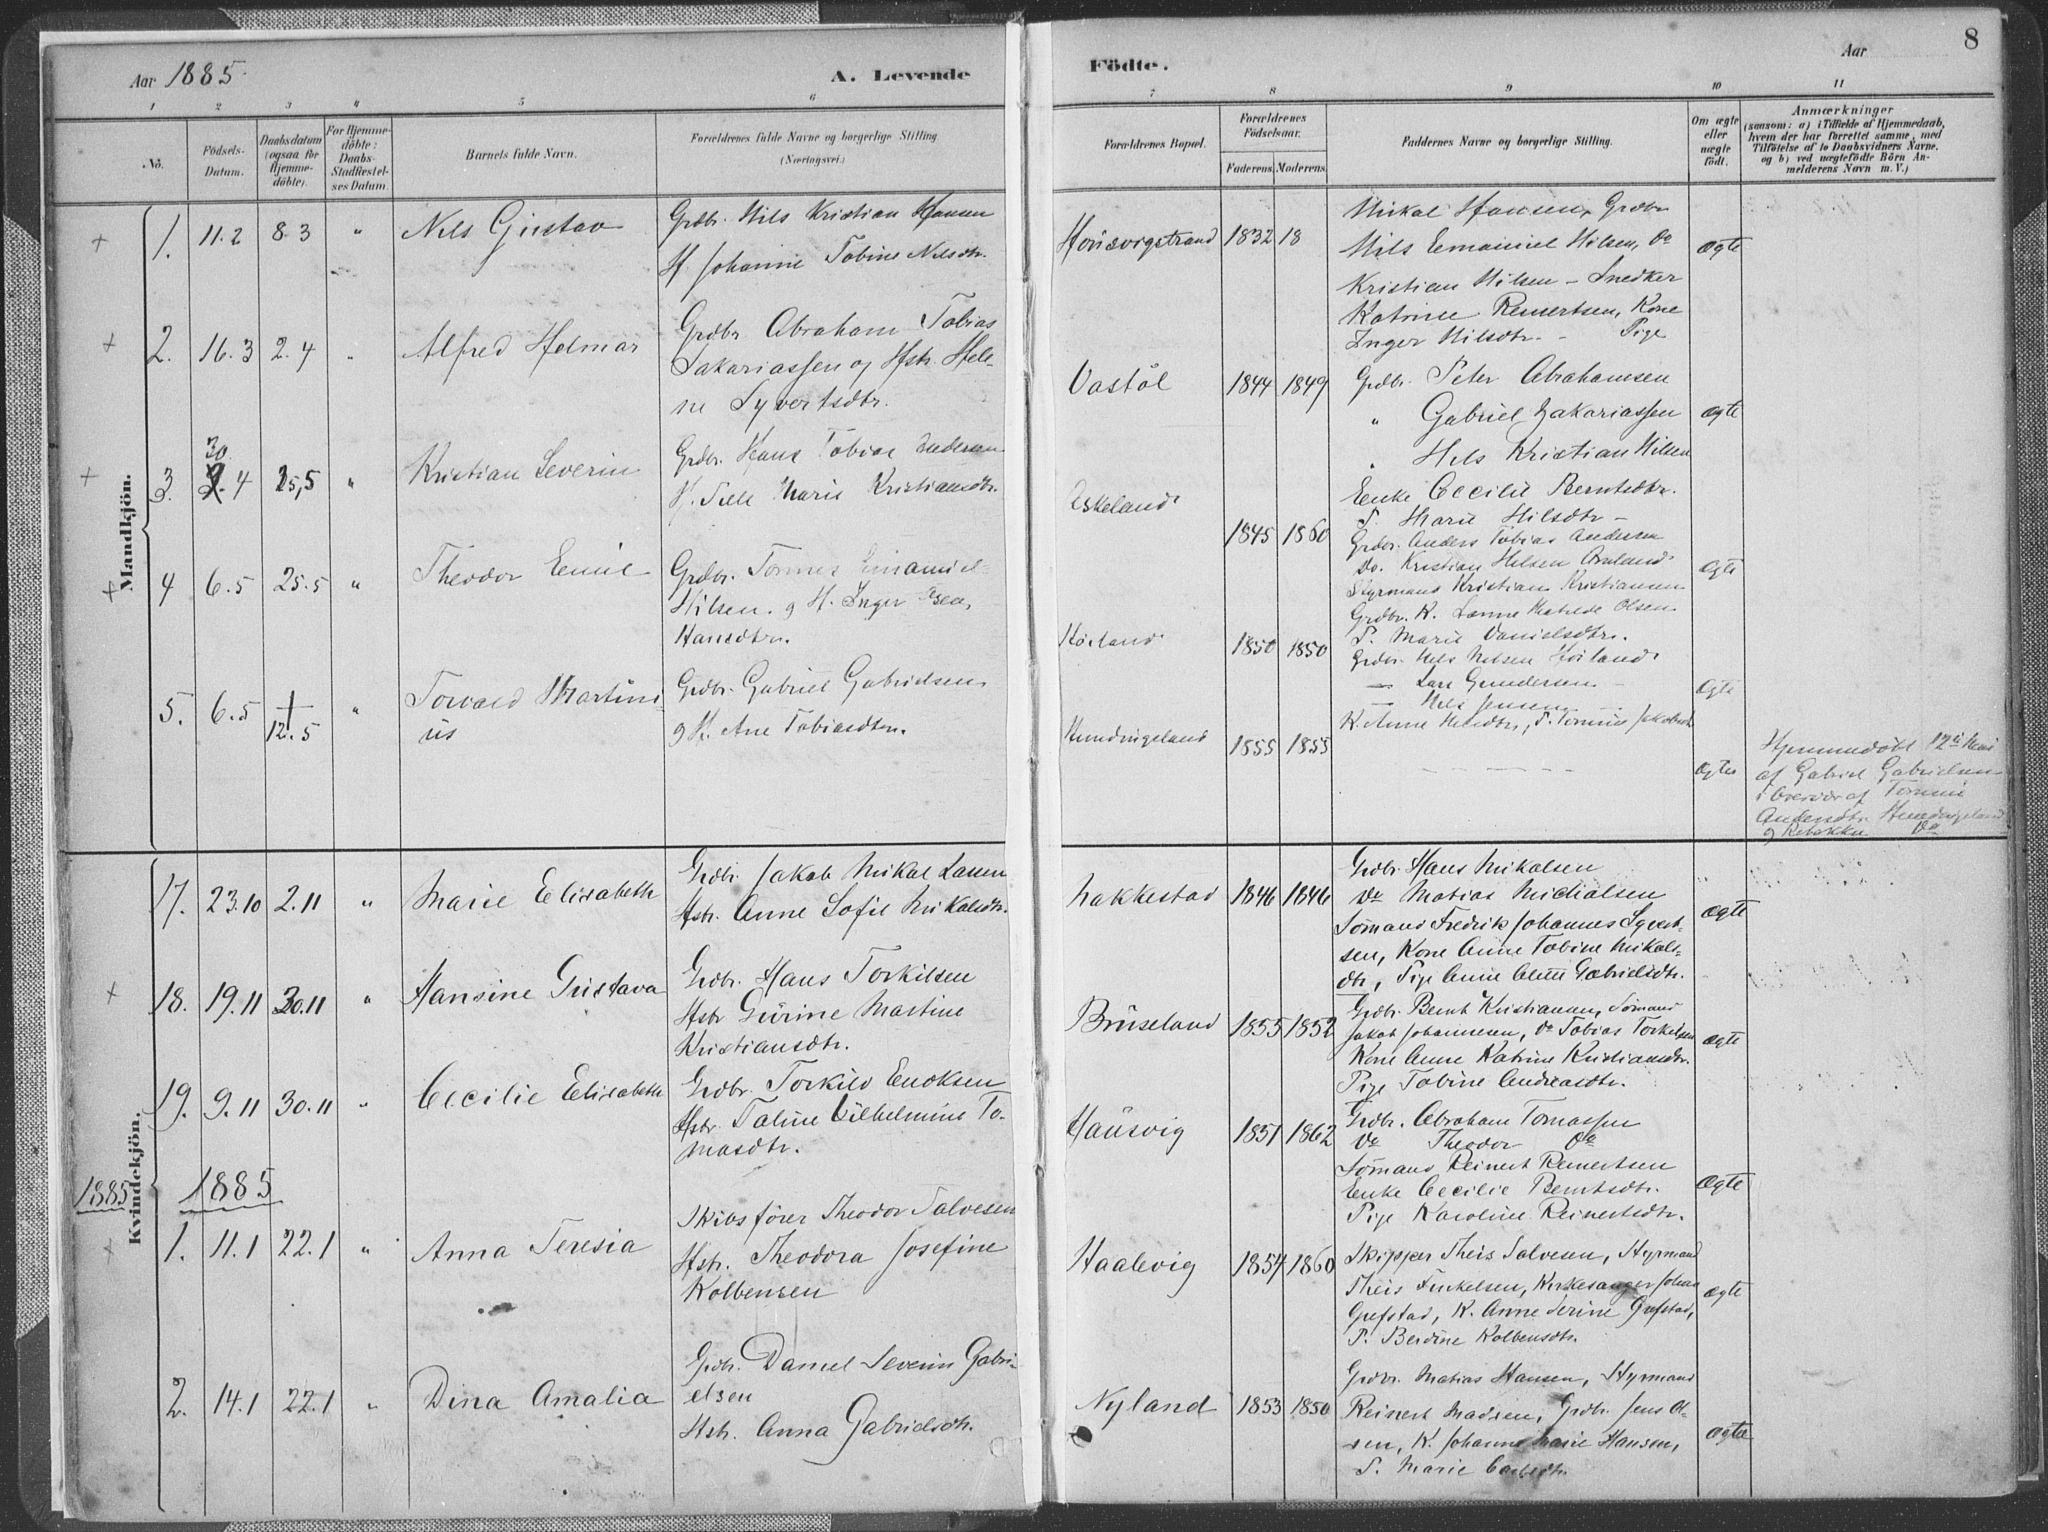 Aar 1885.
A. Levende
Födte.
Aar
8
1
2
3
4
5
6
7
8
9
10
11
No.
Födsels-
Datum.
Daabsdatum
(ogsaa for
Hjemme-
döbte).
For Hjemme-
döbte:
Daabs-
Stadfæstel-
ses Datum.
Barnets fulde Navn.
Forældrenes fulde Navne og borgerlige Stilling
(Næringsvei.)
Forældrenes Bopæl.
Forældrenes
Födselsaar.
Faderens.
Moderens.
Faddernes Navne og borgerlige Stilling.
Om ægte
eller
uægte
födt.
Anmærkninger
(saasom: a) i Tilfælde af Hjemmedaab,
hvem der har forrettet samme, med
Tilföielse af to Daabsvidners Navne,
og b) ved uægtefödte Börn An-
melderens Navn m. V.)
Mandkjön.
1. 11.2 8.3 " Nils Gustav
Grdbr. Nils Kristian Hansen
H. Johanne Tobine Nilsdtr.
1832 18
Mikal Hansen, Grdbr
Nils Emanuel Nilsen, Do
Kristian Nilsen - Snedker
Katrine Reinertsen, Kone
Inger Nilsdtr. - Pige
ægte
2. 16.3 2.4 " Alfred Helmar
Grdbr Abraham Tobias
Sakariassen og Hstr. Hele-
ne Syvertsdtr.
Vastöl 1844 1849
Grdbr. Peter Abrahamsen
" Gabriel Zakariassen
" Nils Kristian Nilsen
Enke Cecilie Berntsdtr.
P. Marie Nilsdtr -
ægte
30
3. 4 25,5 " Kristian Severin
Grdbr. Hans Tobias Andersen
H. Sille Marie Kristiansdtr.
Eskeland 1845 1860
Grdbr. Anders Tobias Andersen
Do. Kristian Nilsen
Styrmand Kristian Kristiansen
Grdbr. K. Matilde Olsen
P. Marie Danielsdtr.
ægte
4 6.5 25.5 " Theodor Emil
Grdbr. Tönnes Emanuel
Nilsen. og H. Inger
Hansdtr.
Höiland 1850 1850
Grdbr. Nils Nilsen Höiland
— Lars Gundersen
— Nils Jensen
K. Anne Nilsdtr, P. Tomine Jakobsdtr
ægte
5. 6.5 +
12.5 " Torvald Martini-
us
Grdbr. Gabriel Gabrielsen
og H. Ane Tobiasdtr.
Hundingsland 1855 1855
ægte
Hjemmedöbt 12te Mai
af Gabriel Gabrielsen
i Overvær af Tomine
Andersdtr. Hundingsland
og Rebekka Do
Kvindekjön.
17. 23.10 2.11 " Marie Elisabeth
Grdbr. Jakob Mikal Larsen
Hstr. Anne Sofie Mikalsdtr.
Nakkestad 1846 1846
Grdbr Hans Mikalsen
Do Matias Michalsen
Sömand Fredrik Johannes Syvert-
sen, Kone Anne Tobine Mikals-
dtr, Pige Anne Gabrielsdtr.
ægte
18. 19.11 30.11 " Hansine Gustava
Grdbr. Hans Torkilsen
Hstr Gurine Martine
Kristiansdtr.
Brüseland 1855 1852
Grdbr. Bernt Kristiansen, Sömand
Jakob Johannesen, Do Tobias Torkelsen
Kone Anne Katrine Kristiansdtr.
Pige Tobine Andreasdtr.
ægte
19. 9.11 30.11 " Cecilie Elisabeth
Grdbr. Torkild Enoksen
Hstr. Taline Vilhelmine To-
masdtr.
Haüsvig 1851 1862
Grdbr. Abraham Tomassen
Do Theodor Do
Sömand Reinert Reinertsen
Enke Cecilie Berntsdtr.
Pige Karoline Reinertsdtr.
ægte
1885 1885
1. 11.1 22.1 " Anna Teresia
Skibsförer Theodor Salvesen
Hstr. Theodora Josefine
Kolbensen
Haalevig 1854 1860
Skipper Theis Salvesen, Styrmand
Theis Kirkesanger Johan
Gjefstad, K. Anne Serine Gjefstad,
P. Berdine Kolbensdtr.
ægte
2. 14.1 22.1 " Dina Amalia
Grdbr. Daniel Severin Gabri-
elsen
Hstr. Anna Gabrielsdtr.
Nyland 1853 1850
Grdbr. Matias Hansen, Styrmand
Reinert Madsen, Grdbr. Jens Ol-
sen, K. Johanne Marie Hansen,
P. Marie
ægte